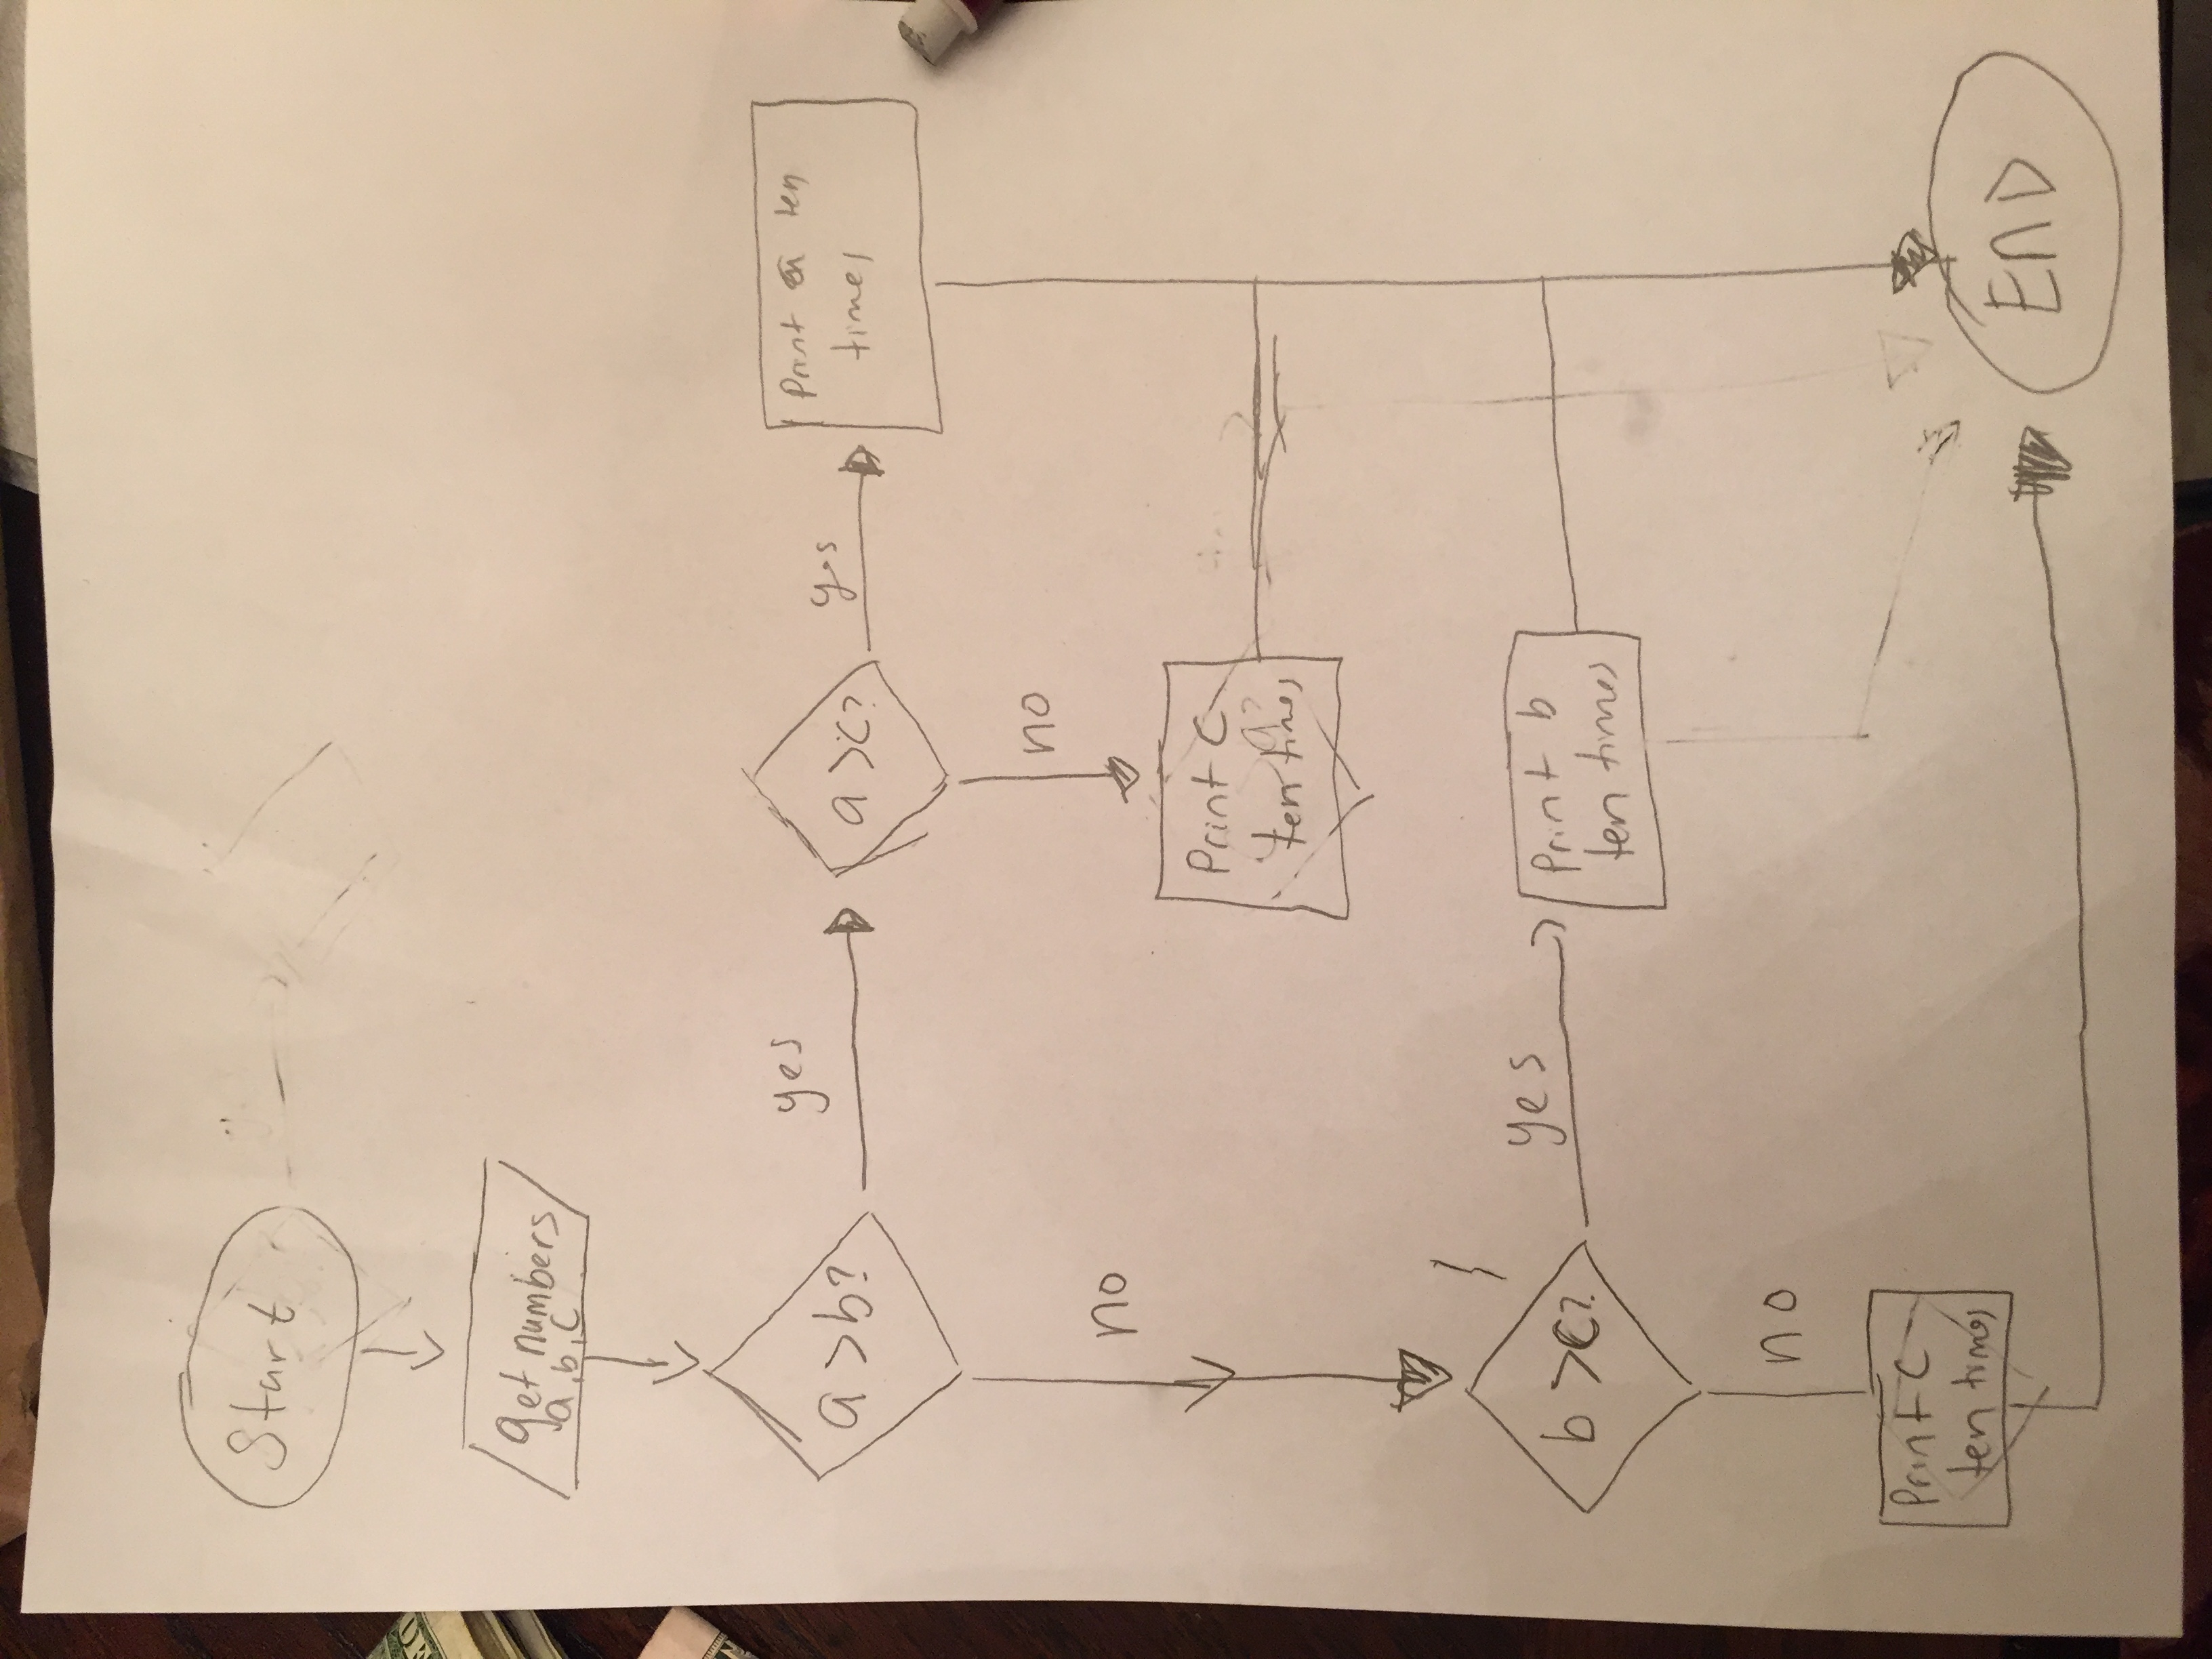 Start
get numbers
a,b,c
a>b?
yes
a>c?
yes
Print a ten
times
no
no
Print c
ten times
b>c?
yes
Print b
ten times
no
Print c
ten times
END